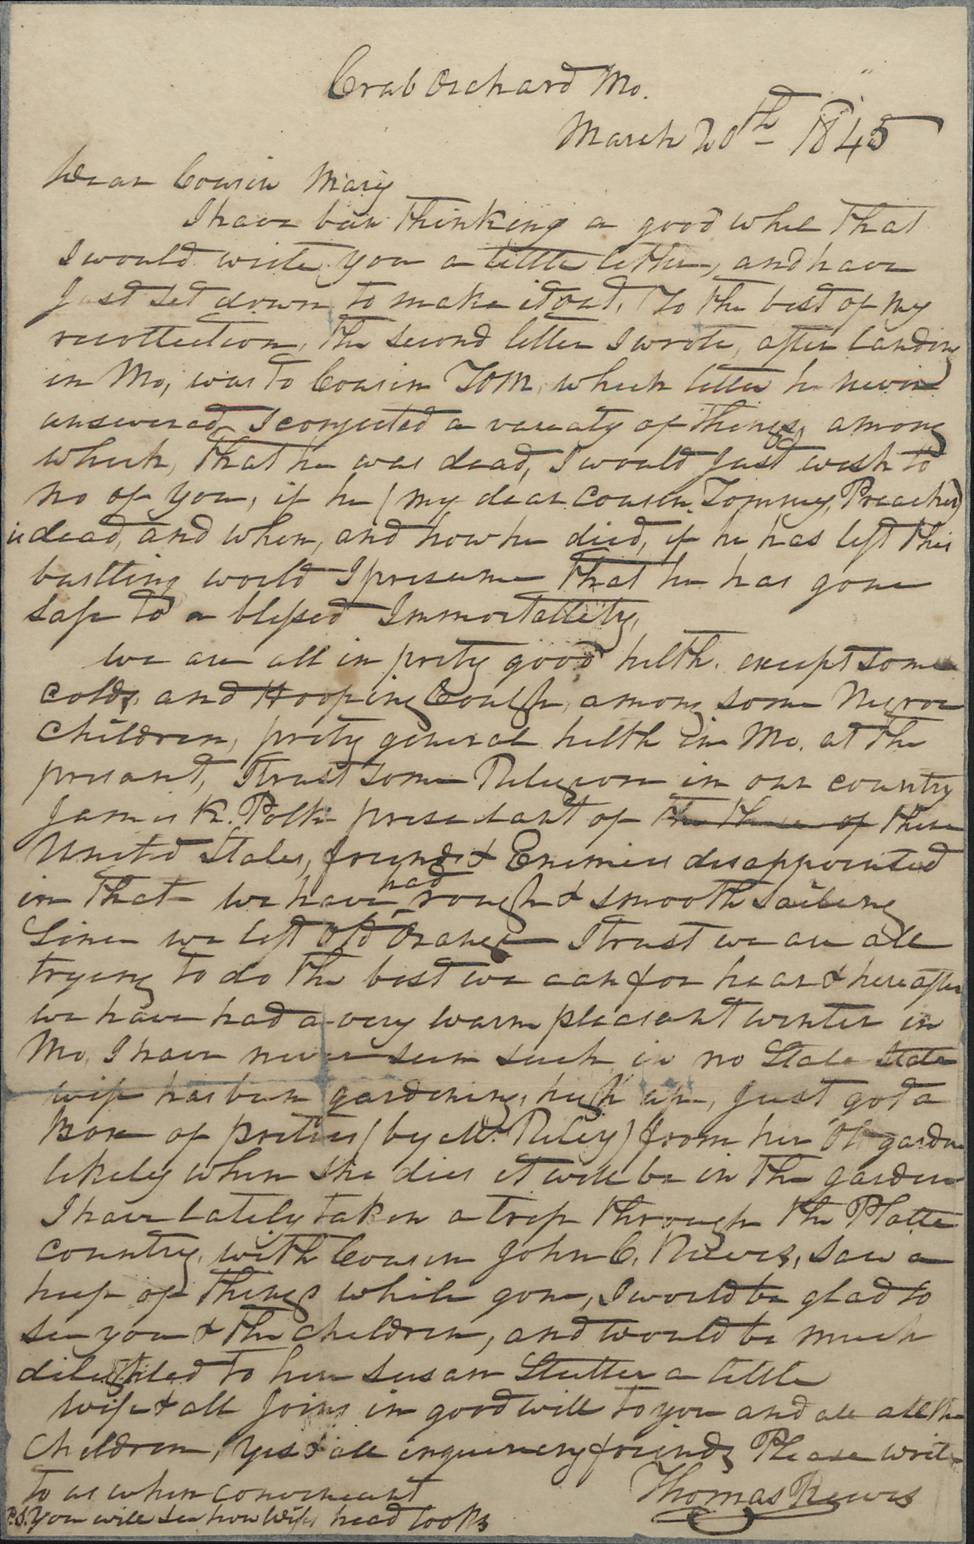 Crab Orchard Mo.
March 20th 1845
Dear Cousin Mary
I have ben thinking a good while that
I would write you a little letter, and have
Just set down to make it out. To the best of my
recollection, the second letter I wrote, after landing
in Mo, was to Cousin Tom, which letter he never
answered, I conjected a variaty of things, among
which, that he was dead, I would Just wish to
no of you, if he (my dear Cousin Tommy Preacher)
is dead, and when, and how he died, if he has left this
bustling world I presume that he has gone
safe to a blessed Immortallity,
We are all in prity good helth. except some
colds, and Hooping Cough, among some Negroe
Children, prity general helth in Mo. at the
presant, I trust some Religion in our country
James K. Polk presedant of the these of these
United States, friends & Enimies disappointed
in that - we have had rough & smooth sailing
Since we left Old Orange I trust we are all
trying to do the best we can for hear & hereafter
we have had a very warm pleasant winter in
Mo. I have never seen such in no State State
wife has bin gardening, high up, Just got a
Box of prities (by Mr. Riley) from her Old garden
likely when she dies it will be in the garden
I have lately taken a trip through the Platte
country, with Cousin John C. Reives, saw a
heep of things while gone, I would be glad to
see you & the children, and would be much
dilighted to hear Susan Stutter a little
Wife & all Joins in good will to you and all the
Children, Yes & all inquireing friends Please write
to us when convenient
Thomas Reives
P.S. You will see how Wifes head looks